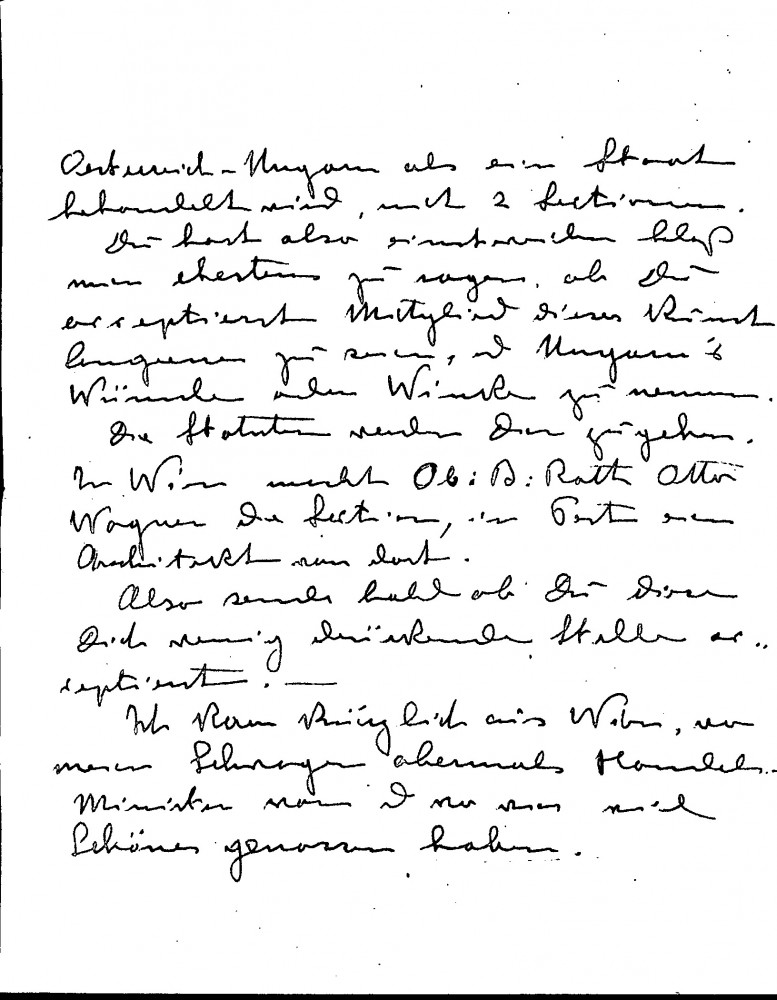 Oesterreich-Ungarn als ein Staat
behandelt wird, mit 2 Sectionen.
Du hast also einstweilen bloß
mir ehestens zu sagen, ob Du
acceptierst Mitglied dieses Kunst
zu sein, und Ungarn's
Wünsche oder Winke zu nennen.
Die Statuten werden Dir zugehen.
In Wien macht Ob: B: Rath Otto
Wagner die Section, in Pest ein
Architekt von dort.
Also sende bald ob Du diese
Dich wenig drückende Stelle ac..
ceptierst. —
Ich kam kürzlich aus Wien, wo
mein Schwager abermals Handels-
Minister war u wo wir viel
Schönes genossen haben.